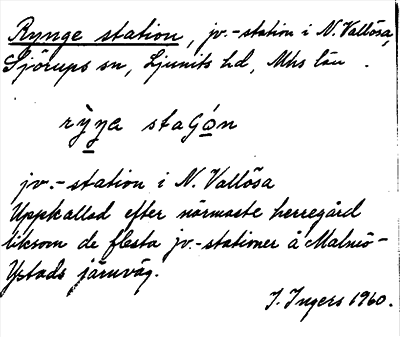 Rynge station, jv.-station i N. Vallösa,
Sjörups sn, Ljunits hd, Mhs län.
rỳŋa staGón
jv.-station i N. Vallösa
Uppkallad efter närmaste herregård
liksom de flesta jv.-stationer å Malmö-
Ystads järnväg.
I. Ingers 1960.